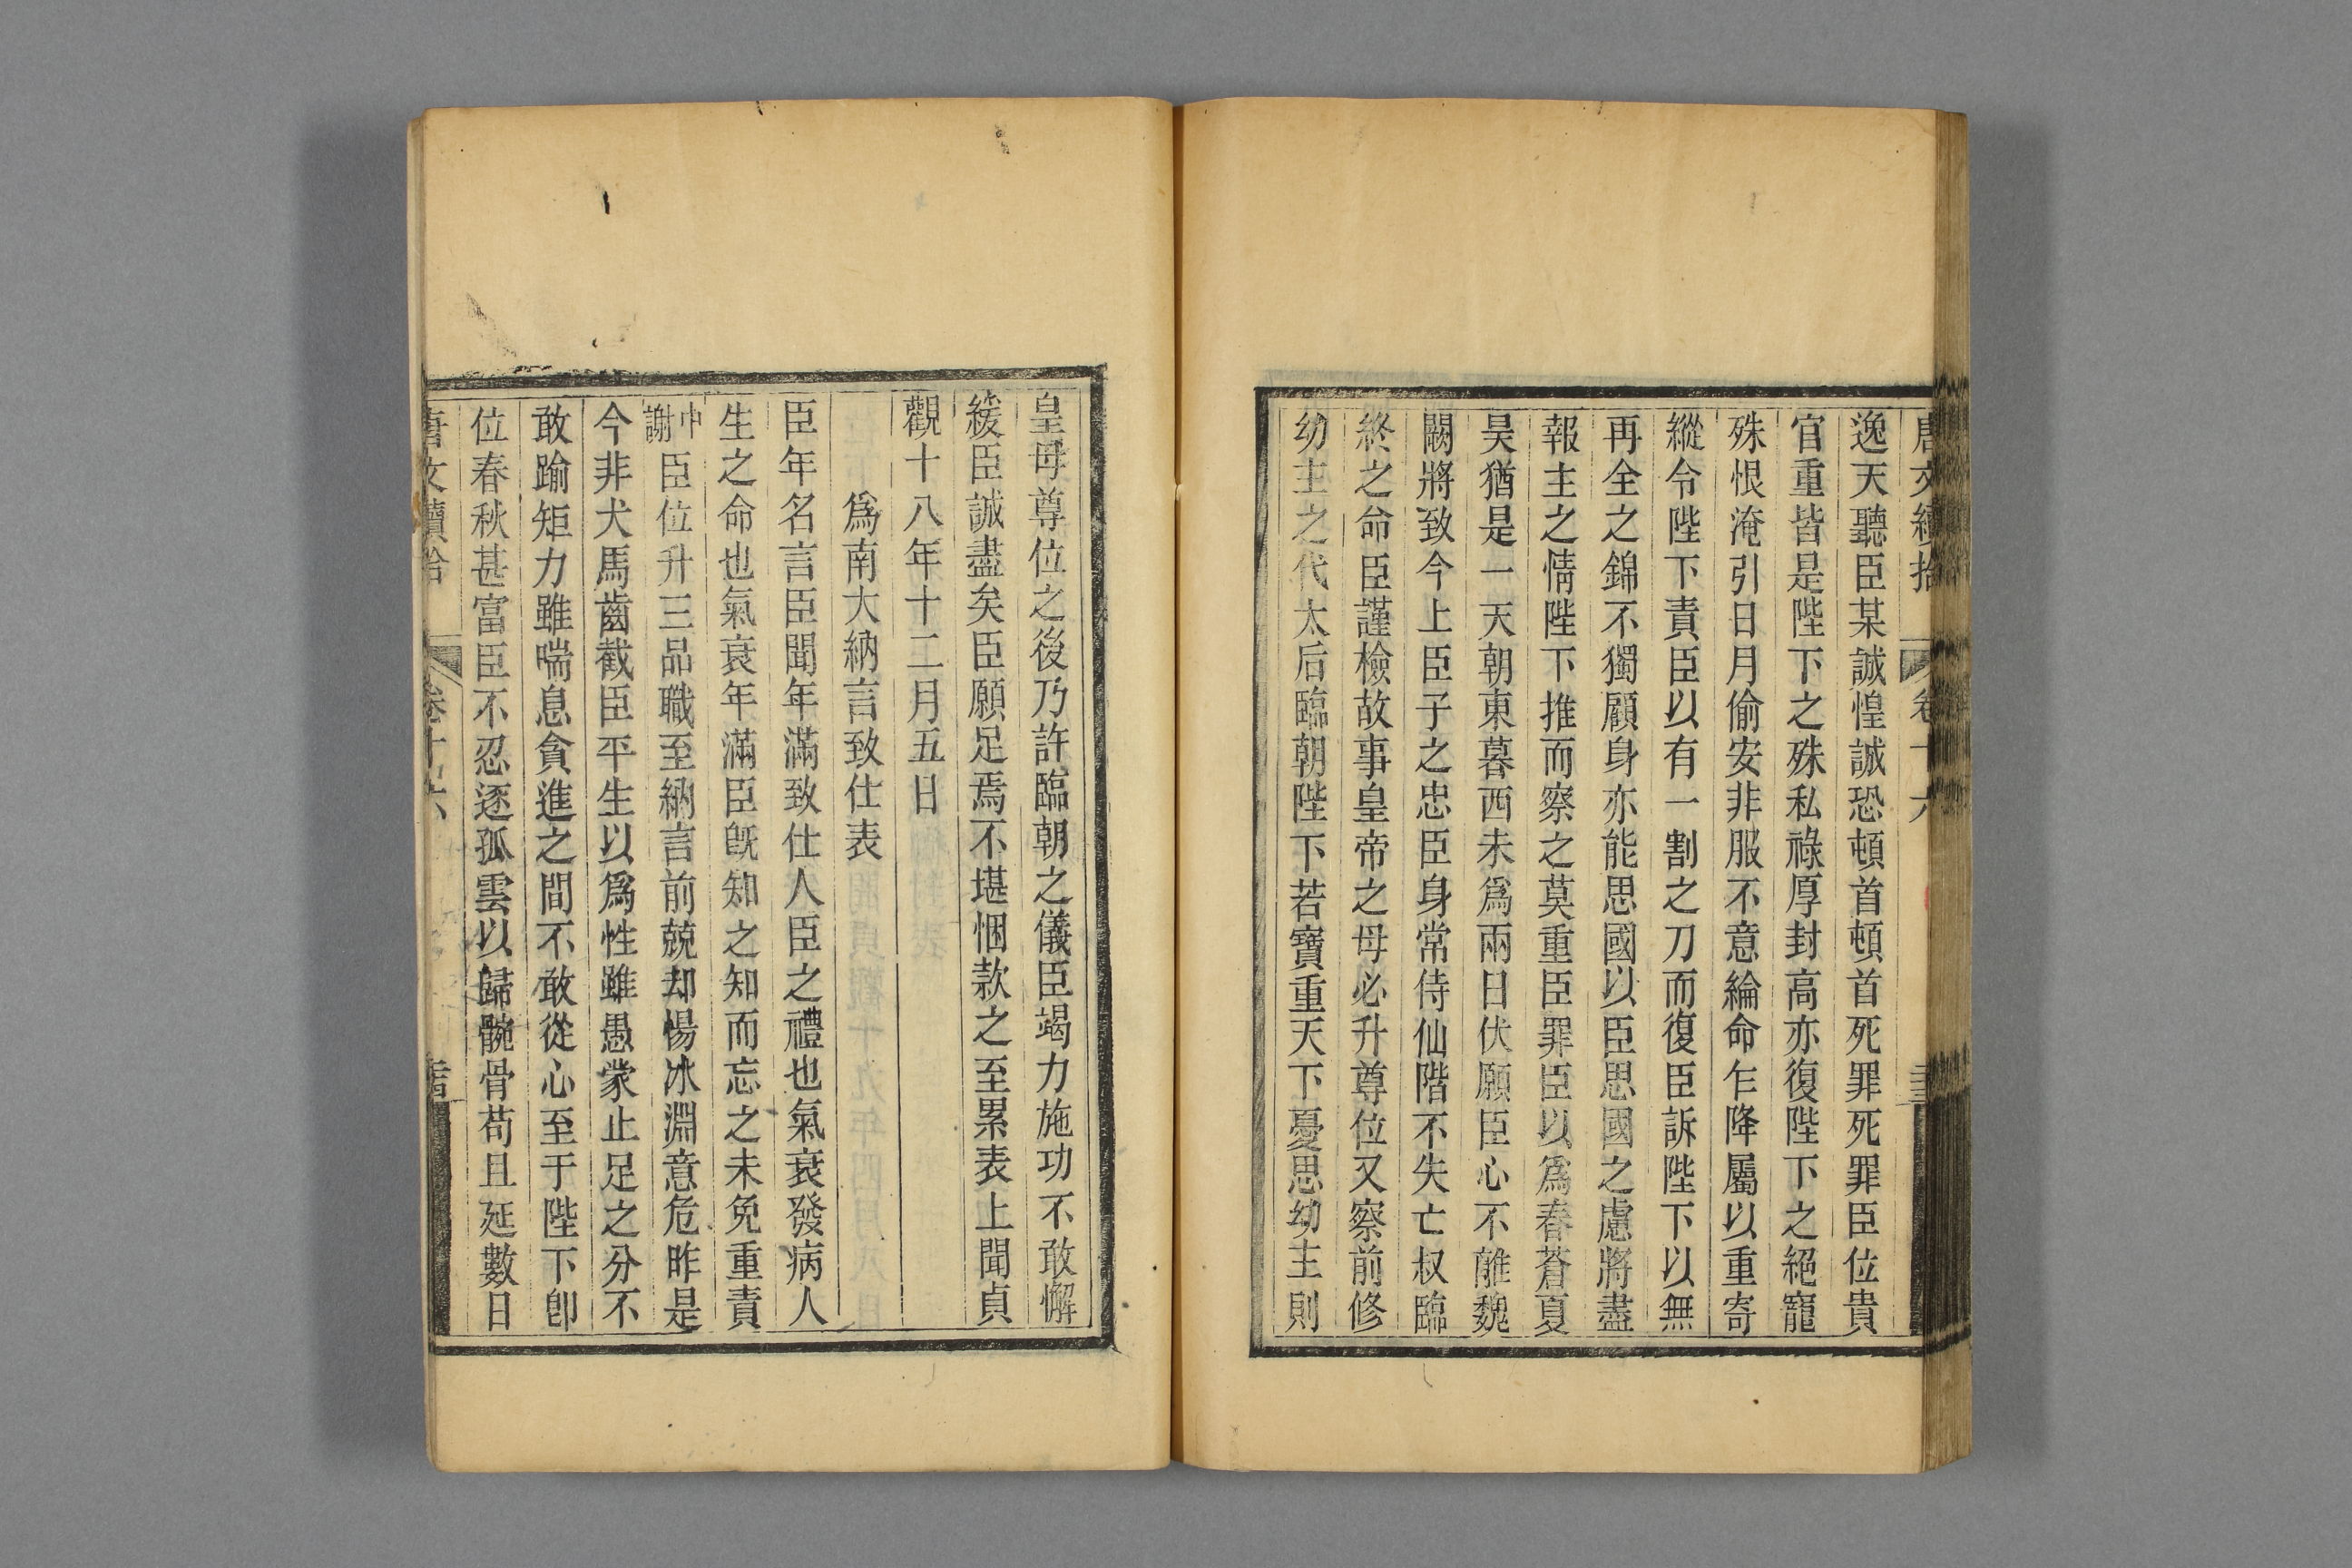 唐文續拾 卷十六 三
逸天聽臣某誠惶誠恐頓首頓首死罪死罪臣位貴
官重皆是陛下之殊私祿厚封高亦復陛下之絕寵
殊恨淹引日月偷安非服不意綸命乍降屬以重寄
縱令陛下責臣以有一割之刀而復臣訴陛下以無
再全之錦不獨顧身亦能思國以臣思國之慮將盡
報主之情陛下推而察之莫重臣罪臣以爲春蒼夏
昊猶是一天朝東暮西未爲兩日伏願臣心不離魏
闕將致今上臣子之忠臣身常侍仙階不失亡叔臨
終之命臣謹檢故事皇帝之母必升尊位又察前修
幼主之代太后臨朝陛下若寶重天下憂思幼主則
皇母尊位之後乃許臨朝之儀臣竭力施功不敢懈
緩臣誠盡矣臣願足焉不堪悃款之至累表上聞貞
觀十八年十二月五日
爲南大納言致仕表
臣年名言臣聞年滿致仕人臣之禮也氣衰發病人
生之命也氣衰年滿臣旣知之知而忘之未免重責
中謝臣位升三品職至納言前兢却惕冰淵意危昨是
今非犬馬齒截臣平生以爲性雖愚蒙止足之分不
敢踰矩力雖喘息貪進之間不敢從心至于陛下卽
位春秋甚富臣不忍逐孤雲以歸骸骨苟且延數日
唐文續拾 卷十六